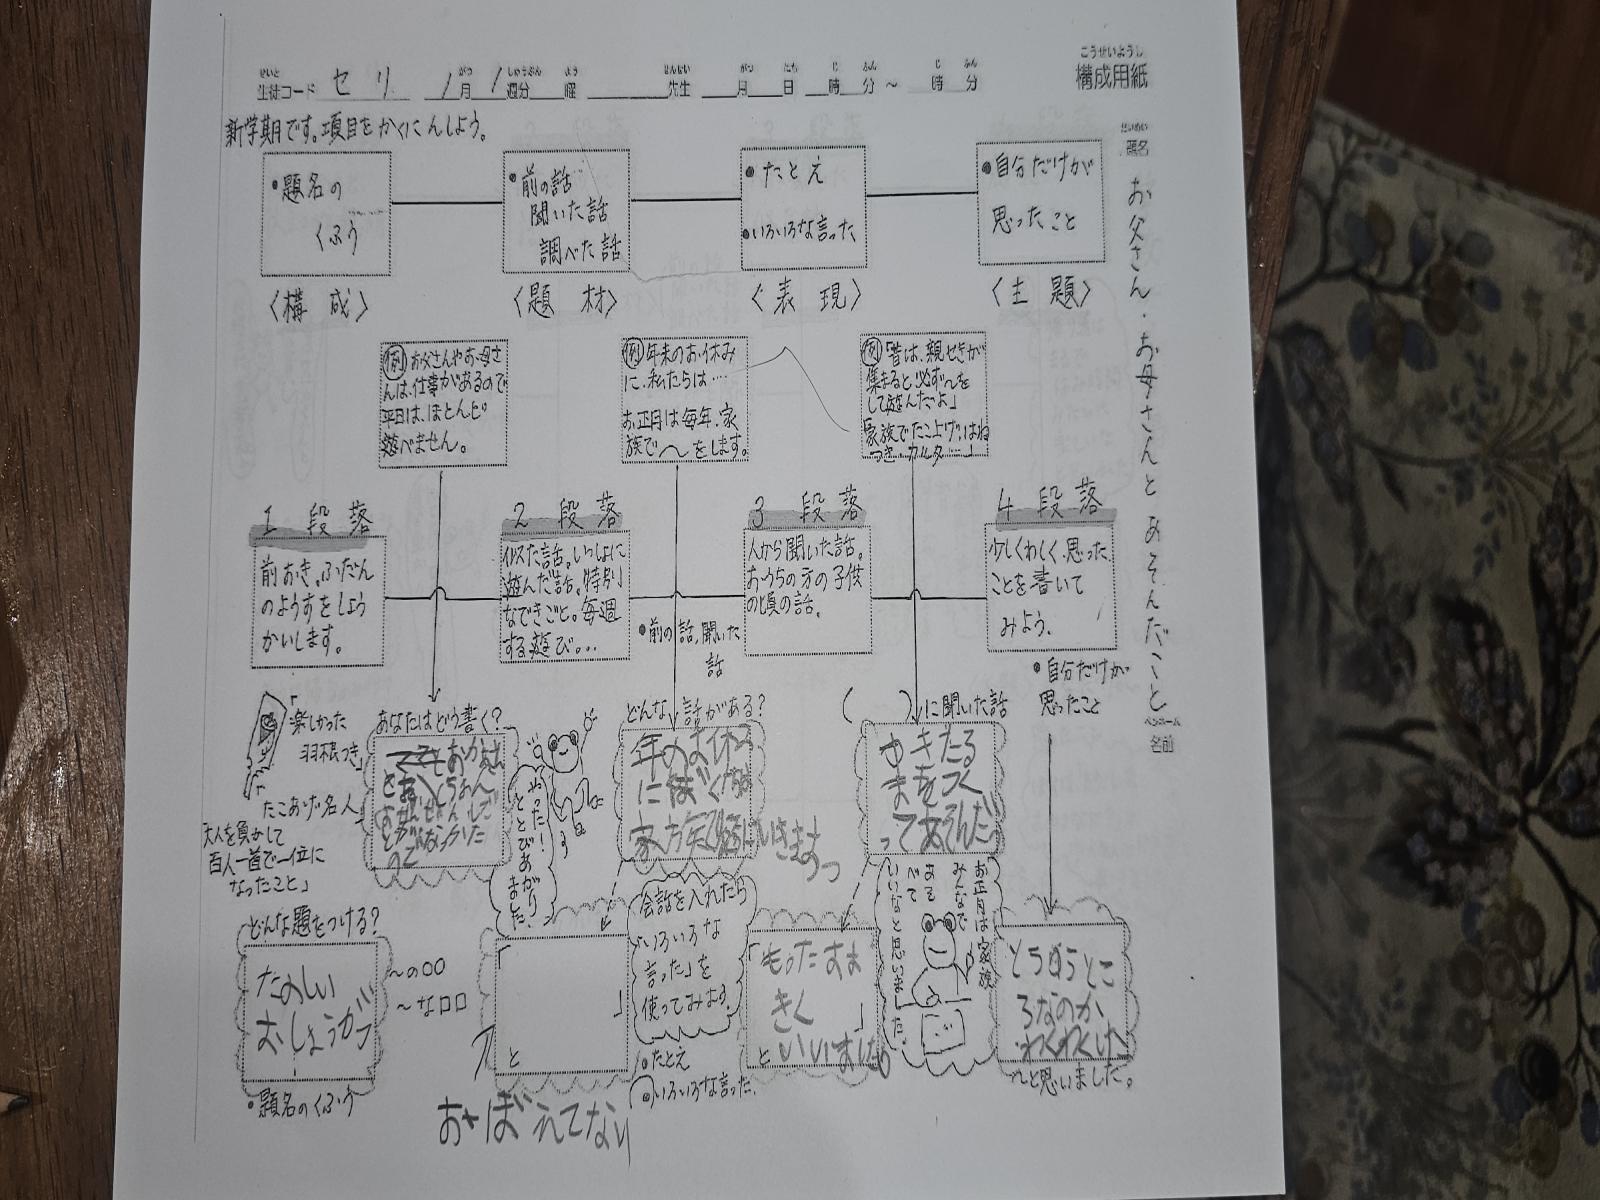 こうせいようし
構成用紙
せいと がつ しゅうぶん よう せんせい がつ にち じ ふん じ ふん
生徒コード セリ 1月 1週分 曜 先生 月 日 時 分 ～ 時 分
だいめい
題名
お父さん・お母さんとあそんだこと
ペンネーム
名前
新学期です。項目をかくにんしよう。
・自分だけが
思ったこと
〈主題〉
・たとえ
・いろいろな言った
〈表現〉
・前の話
聞いた話
調べた話
〈題材〉
・題名の
くふう
〈構成〉
例 お父さんやお母さ
んは、仕事があるので
平日は、ほとんど
遊べません。
例 年末のお休み
に、私たちは…
お正月は毎年、家
族で〜をします。
例 「昔は、親せきが
集まると必ず〜を
して遊んだよ」
「家族でたこ上げ、はね
つき、カルタ…」
1段落
前おき。ふだん
のようすをしょう
かいします。
2段落
似た話。いっしょに
遊んだ話。特別
なできごと。毎週
する遊び…
・前の話、聞いた
話
3段落
人から聞いた話。
おうちの方の子供
の頃の話。
4段落
少しくわしく思った
ことを書いて
みよう。
・自分だけが
思ったこと
「楽しかった
羽根つき」
たこあげ名人」
「大人を負かして
百人一首で一位に
なったこと」
あなたはどう書く?
どんな話がある?
年のお休み
にぼくたちは
家方年
いきます
( )に聞いた話
やきたる
まをつく
ってあそんだ
「やった!」
ととびあがり
ました。
どんな題をつける?
たのしい
おしょうがつ
〜の○○
〜な□□
・題名のくふう
「
」
と
おぼえてない
会話を入れたら
「いろいろな
言った」を
使ってみよう。
・たとえ
・いろいろな言った
「もったすま
きく 」
といいました
お正月は家族
みんなで
あそべて
いいなと思いました。
とうめうとこ
ろなのか
わくわくした
と思いました。